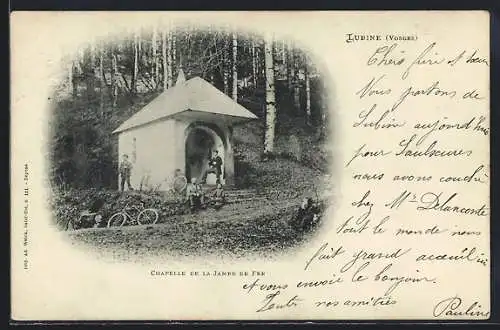 LUBINE (VOSGES)
Chers frère et sœur
Vous partons de
Lubine aujourd'hui
pour Saulxures
nous avons couché
chez Mr Delancoste
tout le monde nous
fait grand accueil
et vous envoie le bonjour.
Toutes nos amitiés
Pauline
CHAPELLE DE LA JAMBE DE FER
Ad. WEICK, Saint-Dié, n 211 - Déposé